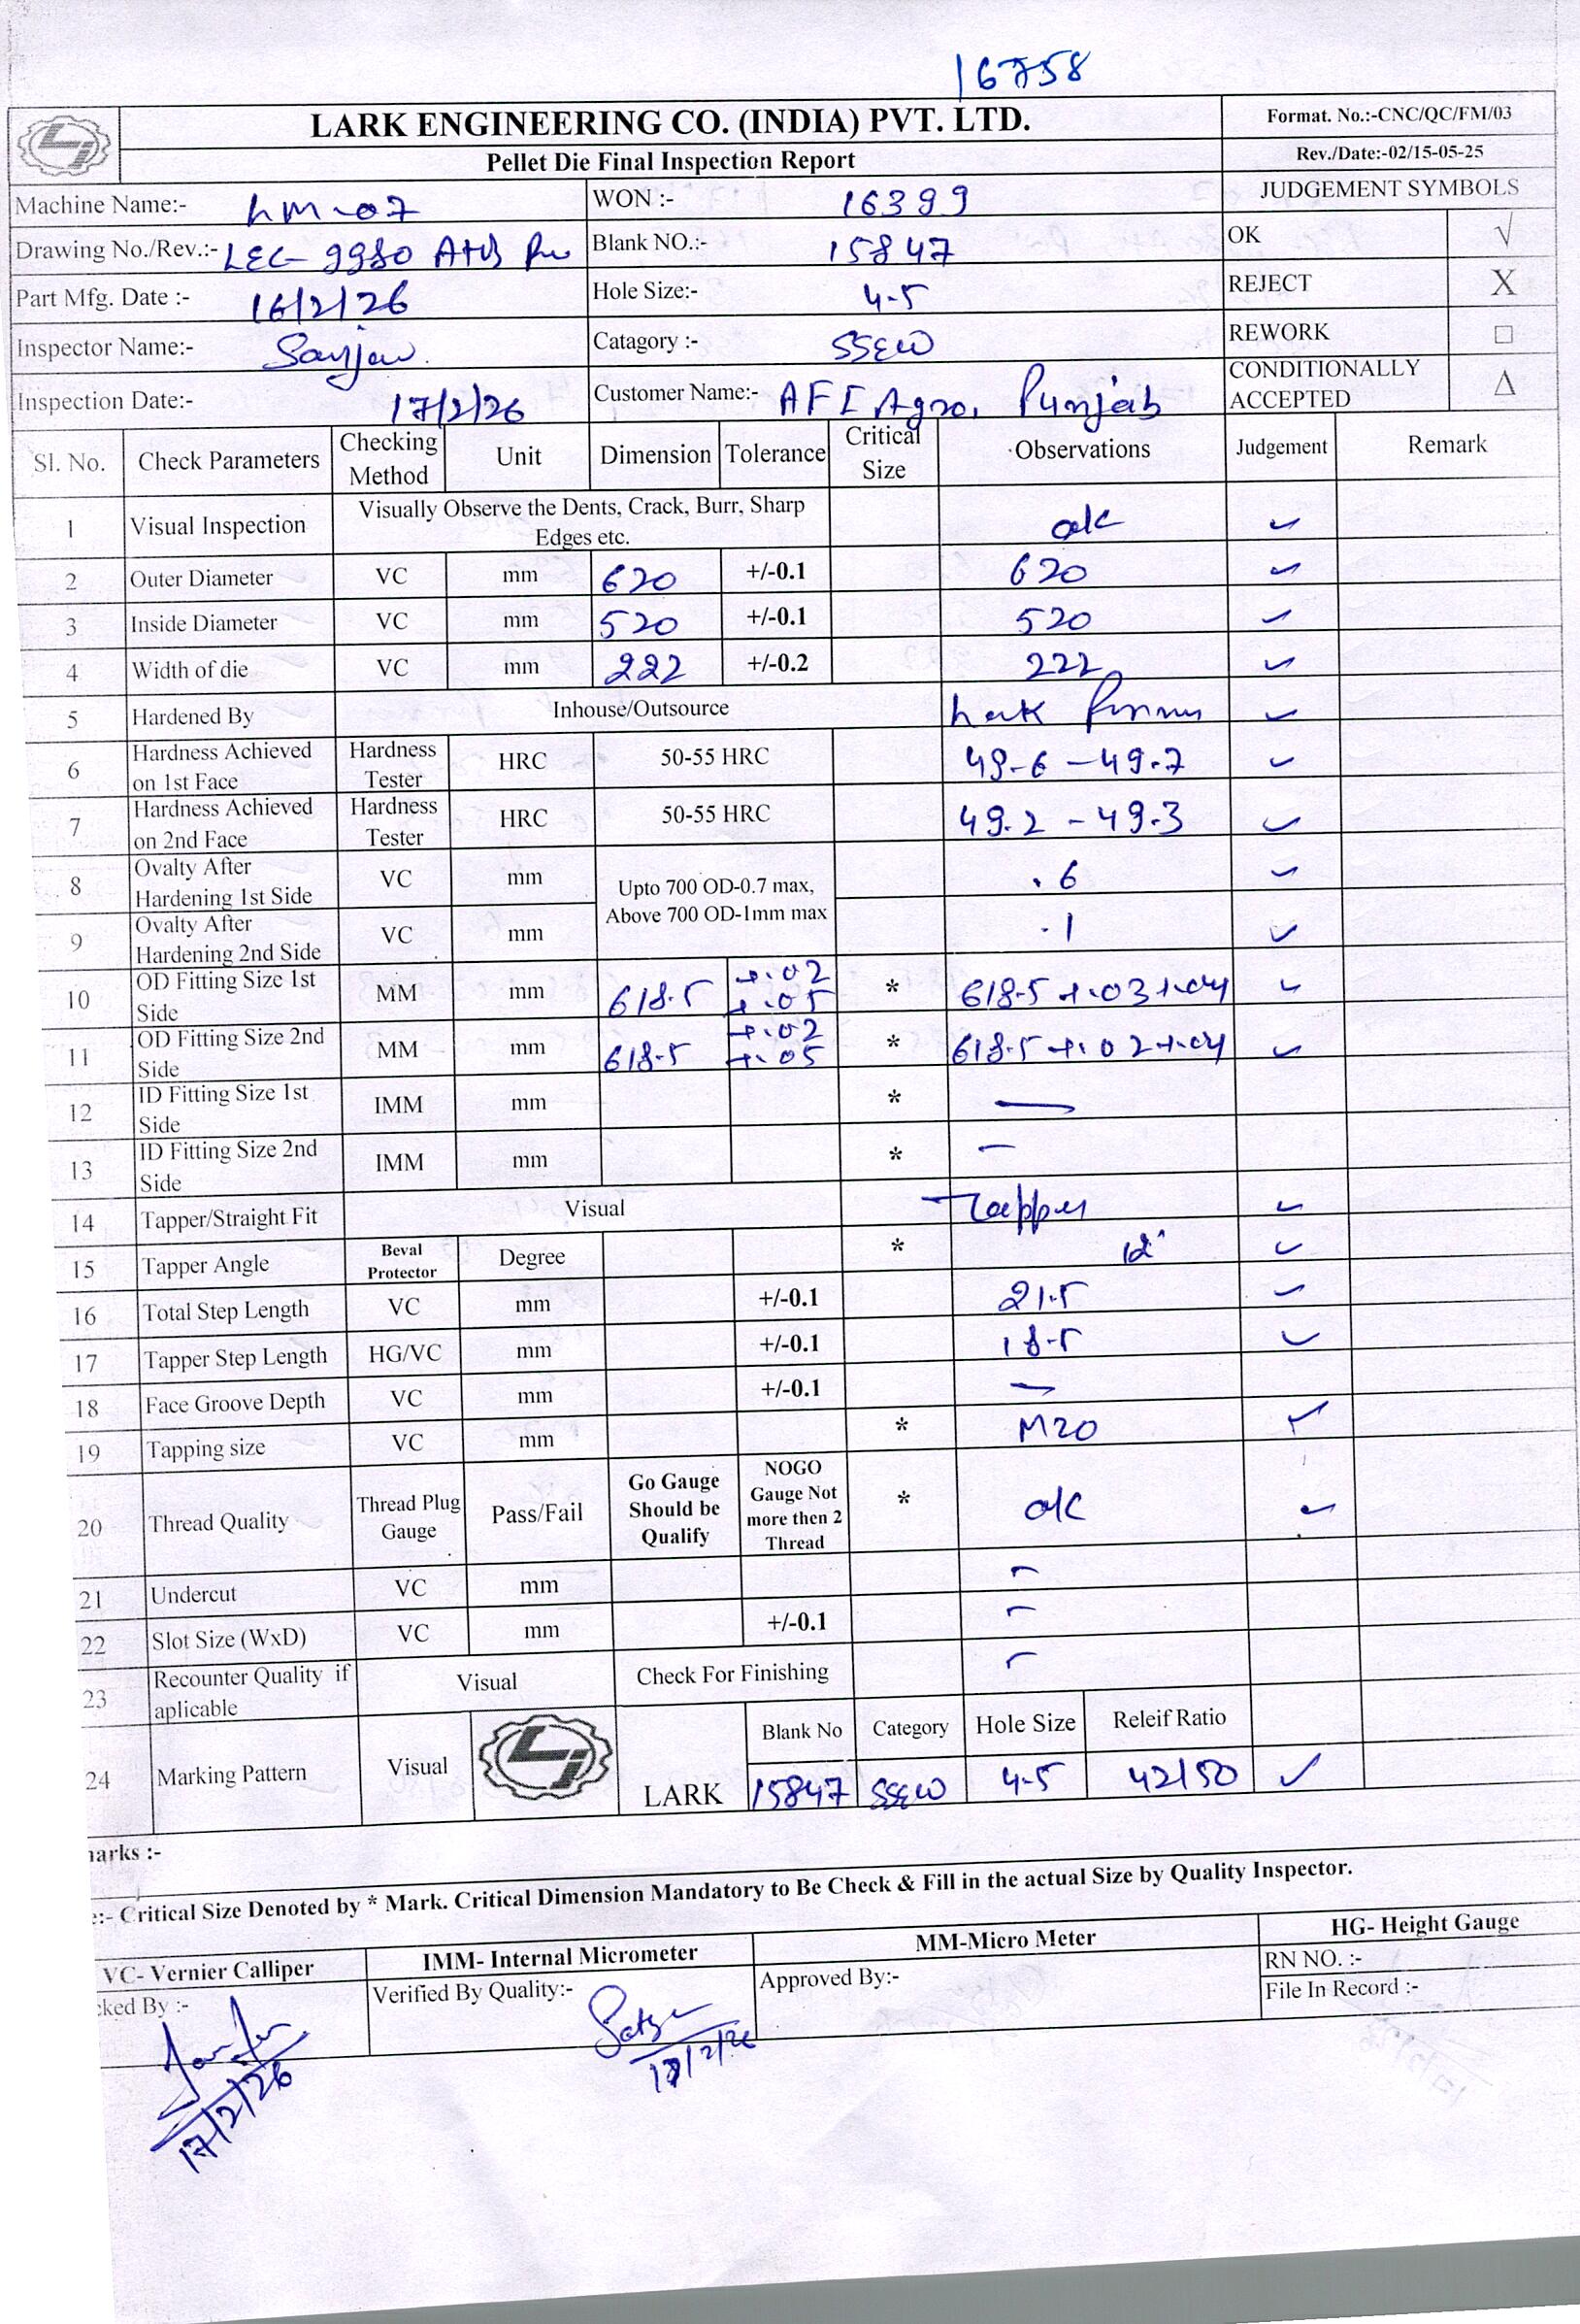 16758
LARK ENGINEERING CO. (INDIA) PVT. LTD.
Format. No.:-CNC/QC/FM/03
Pellet Die Final Inspection Report
Rev./Date:-02/15-05-25
Machine Name:- hm-07 WON :- 16399 JUDGEMENT SYMBOLS
Drawing No./Rev.:- LEC-9980 Blank NO.:- 15847 OK √
Part Mfg. Date :- 16/2/26 Hole Size:- 4.5 REJECT X
Inspector Name:- Sanjew Catagory :- SSEW REWORK □
Inspection Date:- 17/2/26 Customer Name:- AFI Agro, Punjab CONDITIONALLY ACCEPTED Δ
Sl. No. Check Parameters Checking Method Unit Dimension Tolerance Critical Size Observations Judgement Remark
1 Visual Inspection Visually Observe the Dents, Crack, Burr, Sharp Edges etc. ok ✓
2 Outer Diameter VC mm 620 +/-0.1 620 ✓
3 Inside Diameter VC mm 520 +/-0.1 520 ✓
4 Width of die VC mm 222 +/-0.2 222 ✓
5 Hardened By Inhouse/Outsource ✓
6 Hardness Achieved on 1st Face Hardness Tester HRC 50-55 HRC 49.6 - 49.7 ✓
7 Hardness Achieved on 2nd Face Hardness Tester HRC 50-55 HRC 49.2 - 49.3 ✓
8 Ovalty After Hardening 1st Side VC mm Upto 700 OD-0.7 max, Above 700 OD-1mm max .6 ✓
9 Ovalty After Hardening 2nd Side VC mm .1 ✓
10 OD Fitting Size 1st Side MM mm 618.5 +.02 +.05 * 618.5 +.03 +.04 ✓
11 OD Fitting Size 2nd Side MM mm 618.5 +.02 +.05 * 618.5 +.02 +.04 ✓
12 ID Fitting Size 1st Side IMM mm * —
13 ID Fitting Size 2nd Side IMM mm * —
14 Tapper/Straight Fit Visual Tapper ✓
15 Tapper Angle Beval Protector Degree * ✓
16 Total Step Length VC mm +/-0.1 21.5 ✓
17 Tapper Step Length HG/VC mm +/-0.1 18.5 ✓
18 Face Groove Depth VC mm +/-0.1 —
19 Tapping size VC mm * M20 ✓
20 Thread Quality Thread Plug Gauge Pass/Fail Go Gauge Should be Qualify NOGO Gauge Not more then 2 Thread * ok ✓
21 Undercut VC mm —
22 Slot Size (WxD) VC mm +/-0.1 —
23 Recounter Quality if aplicable Visual Check For Finishing —
24 Marking Pattern Visual LARK Blank No Category Hole Size Releif Ratio
15847 SSEW 4.5 42/50 ✓
arks :-
:- Critical Size Denoted by * Mark. Critical Dimension Mandatory to Be Check & Fill in the actual Size by Quality Inspector.
VC- Vernier Calliper IMM- Internal Micrometer MM-Micro Meter HG- Height Gauge
cked By :- Verified By Quality:- Approved By:- RN NO. :-
File In Record :-
17/2/26